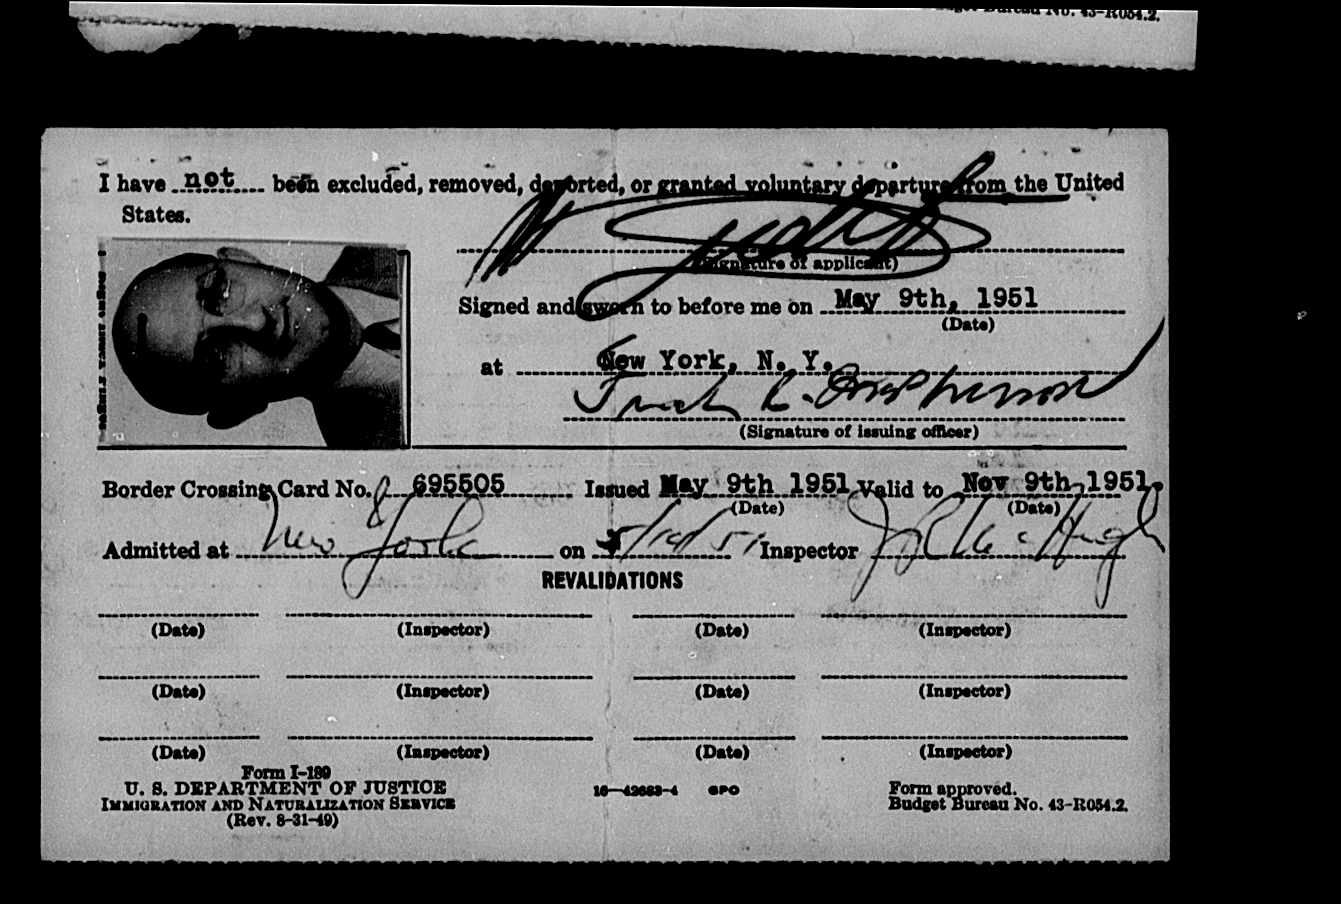 Budget Bureau No. 43-R054.2.
I have not been excluded, removed, deported, or granted voluntary departure from the United
States.
(Signature of applicant)
Signed and sworn to before me on May 9th, 1951
(Date)
at New York, N. Y.
(Signature of issuing officer)
Border Crossing Card No. 695505 Issued May 9th 1951 Valid to Nov 9th, 1951.
(Date) (Date)
Admitted at New York on Inspector
REVALIDATIONS
(Date) (Inspector) (Date) (Inspector)
(Date) (Inspector) (Date) (Inspector)
(Date) (Inspector) (Date) (Inspector)
Form I-189
U. S. DEPARTMENT OF JUSTICE
IMMIGRATION AND NATURALIZATION SERVICE
(Rev. 8-31-49)
16—42683-4 GPO
Form approved.
Budget Bureau No. 43-R054.2.